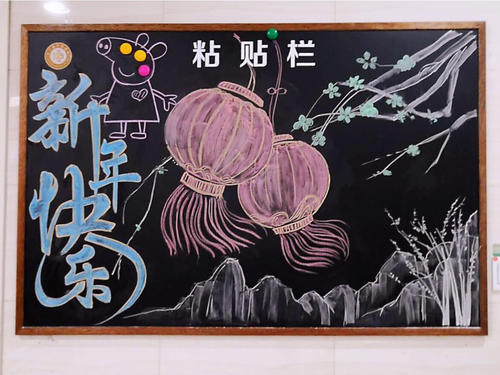 粘贴栏
新年快乐